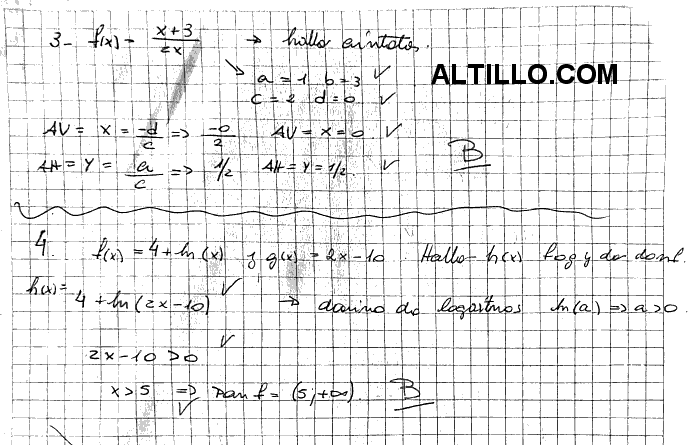 3- f(x) = x+3 / 2x → hallo asíntotas.
a = 1 b = 3 ✓
ALTILLO.COM
c = 2 d = 0 ✓
AV = x = -d/c => -0/2 AV = x = 0 ✓
B
AH = y = a/c => 1/2 AH = y = 1/2 ✓
4. f(x) = 4 + ln(x) y g(x) = 2x - 10. Hallo h(x) fog y do domf.
h(x) = 4 + ln(2x - 10) ✓ → domino do logaritmos ln(a) => a > 0.
2x - 10 > 0 ✓
x > 5 => ✓ Dom f = (5, +∞). B